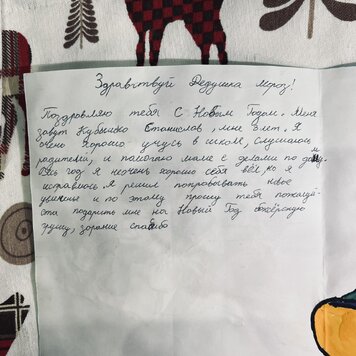 Здравствуй Дедушка мороз!
Поздравляю тебя С Новым Годом. Меня
зовут Кубышко Станислав, мне 8 лет. Я
очень хорошо учусь в школе, слушаюсь
родителей, и помогаю маме с делами по дому.
год я неочень хорошо себя вёл, но я
исправлюсь. Я решил попробывать новое
и по этому прошу тебя пожалуй-
ста подарить мне на Новый Год боксёрскую
грушу, зарание спасибо